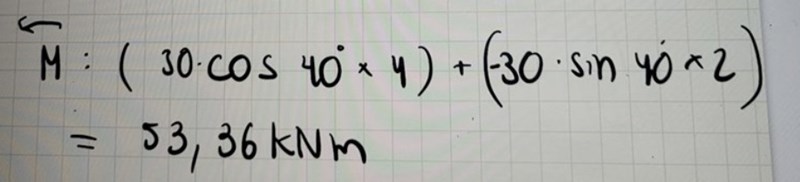 M : ( 30·cos 40° × 4) + (-30 · sin 40° × 2)
= 53,36 kNm